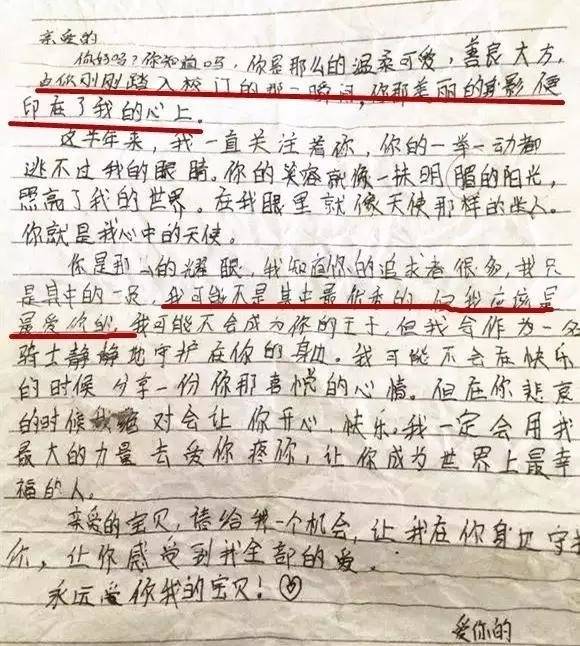 亲爱的
你好吗?你知道吗,你是那么的温柔可爱,善良大方,
从你刚刚踏入校门的那一瞬间,你那美丽的身影便
印在了我的心上。
这半年来,我一直关注着你,你的一举一动都
逃不过我的眼睛。你的笑容就像一抹明媚的阳光,
照亮了我的世界。在我眼里就像天使那样的迷人。
你就是我心中的天使。
你是那么的耀眼,我知道你的追求者很多,我只
是其中的一员,我可能不是其中最优秀的,但我应该是
最爱你的,我可能不会成为你的王子,但我会作为一名
骑士静静地守护在你的身边。我可能不会在快乐
的时候分享一份你那喜悦的心情。但在你悲哀
的时候我绝对会让你开心,快乐。我一定会用我
最大的力量去爱你疼你,让你成为世界上最幸
福的人。
亲爱的宝贝,请给我一个机会,让我在你身边守护
你,让你感受到我全部的爱。
永远爱你我的宝贝!
爱你的